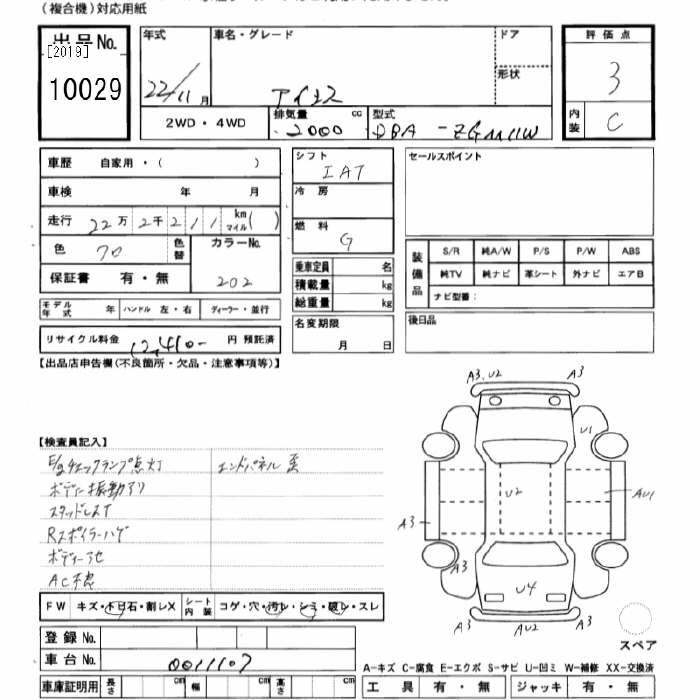 (複合機)対応用紙
出品No. 年式 車名・グレード ドア 評価点
[2019]
10029
22/11月 アイシス 形状 3
2WD・4WD 排気量 cc 型式 内装 C
2000 DBA-ZGM11W
車歴 自家用・( ) シフト セールスポイント
IAT
車検 年 月 冷房
走行 22万2千211 km マイル( ) 燃料
G
色 クロ 色替 カラーNo. 202
保証書 有・無
装備品 S/R 純A/W P/S P/W ABS
純TV 純ナビ 革シート 外ナビ エアB
ナビ型番:
乗車定員 名
積載量 kg
総重量 kg
モデル年式 年 ハンドル 左・右 ディーラー・並行
名変期限 月 日
後日品
リサイクル料金 12,410- 円 預託済
【出品店申告欄(不良箇所・欠品・注意事項等)】
A3.U2 A3
U1
U2
AU1
A3 A3
A3
U4
A3 AU2 A3
【検査員記入】
E/gチェックランプ点灯 エンドパネル歪
ボディー振動アリ
スタッドレスT
Rスポイラーハゲ
ボディー下セ
AC不良
FW キズ・不日石・割レX シート内装 コゲ・穴・汚レ・シミ・破レ・スレ
登録No.
車台No. 0011107
スペア
A-キズ C-腐食 E-エクボ S-サビ U-凹ミ W-補修 XX-交換済
車庫証明用 長さ cm 幅 cm 高さ cm 工具 有・無 ジャッキ 有・無